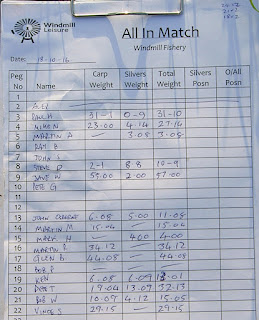 Windmill
Leisure
All In Match
Windmill Fishery
Date: 18-10-16
Peg No Name Carp Weight Silvers Weight Total Weight Silvers Posn O/All Posn
1
2 ALEX
3 PAUL H 31-1 0-9 31-10
4 NIKEN 23-00 4-14 27-14
5 MARTIN A — 3-08 3-08
6 RAY B
7 JOHN
8 STEVE D 2-1 8-8 10-9
9 DAVE W 55.00 2.00 57.00
10 PETE G
11
12
13 JOHN 6-08 5.00 11-08
14 MARTIN M 15-04 — 15-04
15 MARK H — 4.00 4.00
16 MARTIN R 34.12 — 34.12
17 GLEN B 44.08 — 44.08
18 BOB P
19 KEN 6.08 6.09 13.01
20 PETE T 19.04 13.09 32.13
21 BOB W 10.09 4.12 15.05
22 VINCE S 29.15 — 29.15